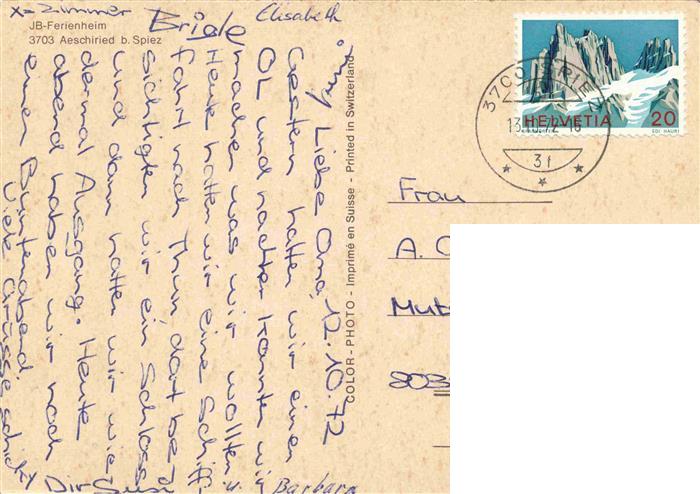 x = Zimmer
JB-Ferienheim
3703 Aeschiried b. Spiez
Elisabeth
Brigle
12.10.72
Liebe Omi!
Gestern hatten wir einen
OL und nachher konnten wir
machen was wir wollten.
Heute hatten wir eine Schiff-
fahrt nach Thun, dort be-
sichtigten wir ein Schloss
und dann hatten wir wie-
dermal Ausgang. Heute
abend haben wir noch
einen Buntenabend.
Viele Grüsse schickt
Dir Susi
u.
Barbara
COLOR-PHOTO - Imprimé en Suisse - Printed in Switzerland
3700 SPIEZ
13.10.72-18
3f
HELVETIA 20
EDI HAURI
Frau
A. C
Mut
803